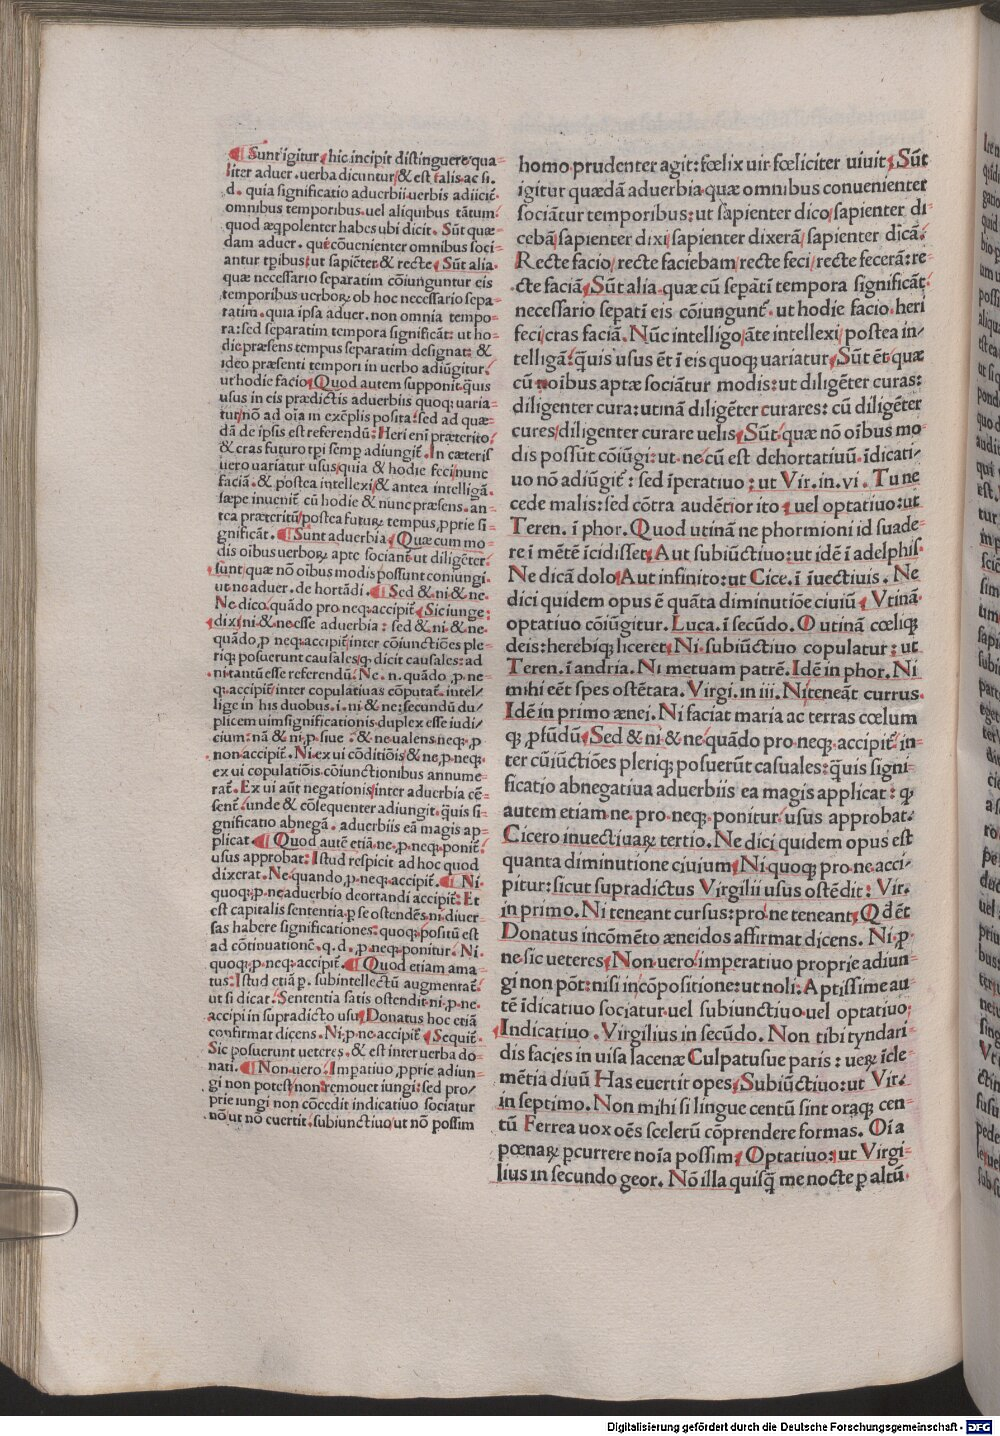 ¶ Sunt igitur / hic incipit distinguere qua-
liter aduer. uerba dicuntur / & est talis ac si.
d. quia significatio aduerbii uerbis adiicit̄
omnibus temporibus. uel aliquibus tātum
quod æq̨ polenter habes ubi dicit. Sūt quæ-
dam aduer. que cōuenienter omnibus soci-
antur tp̄ibus / ut sapiēter & recte / Sūt alia
quæ necessario separatim cōiunguntur eis
temporibus uerboꝝ ob hoc necessario sepa-
ratim. quia ipsa aduer. non omnia tempo-
ra: sed separatim tempora significāt: ut ho-
die præsens tempus separatim designat: &
ideo præsenti tempori in uerbo adiūgitur.
ut hodie facio / Quod autem supponit. q̄uis
usus in eis prædictis aduerbiis quoq; uaria-
tur / nō ad oīa in exēplis posita: sed ad quæ-
dā de ipsis est referendū: Heri enī præterito
& cras futuro tpi semp̄ adiungit̄. In cæteris
uero uariatur usus / quia & hodie feci / nunc
faciā. & postea intellexi / & antea intelligā.
sæpe inuenit̄ cū hodie & nunc præsens. an-
tea præteritū / postea futuꝝ tempus ꝓprie si-
gnificāt. ¶ Sunt aduerbia / Quæcum mo-
dis oibus uerboꝝ apte sociant̄ ut diligēter.
sunt / quæ nō oībus modis possunt coniungi.
ut ne aduer. de hortādi. ¶ Sed & ni & ne.
Ne dico quādo pro neq; accipit̄ / Sic iunge:
dixi / ni & ne esse aduerbia: sed & ni & ne
quādo ꝓ neq; accipit̄ inter cōiunctiōes ple-
riq; posuerunt causales / q̨ dicit causales: ad
ni tantū esse referendū. Ne. n. quādo ꝓ ne-
q; accipit̄ inter copulatiuas cōputat̄. intel/
lige in his duobus. i. ni & ne: secundū du/
plicem uim significationis duplex esse iudi/
cium: nā & ni ꝓ siue & ne ualens neq; ꝓ
non accipit̄. Ni ex ui cōditiōis & ne ꝓ neq;
ex ui copulatiōis cōiunctionibus annume-
rat̄. Ex ui aūt negationis / inter aduerbia cē-
sent̄. unde & cōsequenter adiungit. q̄uis si-
gnificatio abnegā. aduerbiis eā magis ap-
plicat ¶ Quod autē etiā ne ꝓ neq; ponit̄
usus approbat: Istud respicit ad hoc quod
dixerat. Ne quando ꝓ neq; accipit̄. ¶ Ni
quoq; ꝓ ne aduerbio deortandi accipit̄: Et
est capitalis sententia ꝑ se ostendēs ni diuer-
sas habere significationes: quoq; positū est
ad cōtinuationē. q. d. ꝓ neq; ponitur. Ni
quoq; ꝓ neq; accipit̄. ¶ Quod etiam ama-
tus: Istud etiā ꝑ. subintellectū augmentat̄.
ut si dicat. Sententia satis ostendit ni ꝓ ne
accipi in supradicto usu / Donatus hoc etiā
confirmat dicens. Ni ꝓ ne accipit̄ / Sequit̄
Sic posuerunt ueteres. & est inter uerba do-
nati. ¶ Non uero. Impatiuo ꝓprie adiun-
gi non potest / non remouet iungi: sed pro/
prie iungi non cōcedit indicatiuo sociatur
nō ut nō euertit. subiunctiuo / ut nō possim
homo prudenter agit: fœlix uir fœliciter uiuit / Sūt
igitur quædā aduerbia quæ omnibus conuenienter
sociātur temporibus: ut sapienter dico / sapienter di-
cebā / sapienter dixi / sapienter dixerā / sapienter dicā.
Recte facio / recte faciebam / recte feci / recte fecerā: re-
cte faciā / Sūt alia quæ cū sepāti tempora significāt
necessario sepati eis cōiungunt̄. ut hodie facio heri
feci / cras faciā. Nūc intelligo / āte intellexi / postea in/
telligā: q̄uis usus ēt ī eis quoq; uariatur / Sūt ēt quæ
cū oībus aptæ sociātur modis: ut diligēter curas:
diligenter cura: utinā diligēter curares: cū diligēter
cures / diligenter curare uelis / Sūt quæ nō oībus mo
dis possūt cōiūgi: ut ne cū est dehortatiuū. īdicati/
uo nō adiūgit̄: sed īperatiuo: ut Vir. in. vi. Tu ne
cede malis: sed cōtra audētior ito / uel optatiuo: ut
Teren. ī phor. Quod utinā ne phormioni id suade-
re ī mētē īcidisset / Aut subiūctiuo: ut idē ī adelphis.
Ne dicā dolo / Aut infinito: ut Cice. ī īuectiuis. Ne
dici quidem opus ē quāta diminutiōe ciuiū / Vtinā
optatiuo cōiūgitur. Luca. ī secūdo. O utinā cœliq;
deis: herebiq; liceret / Ni subiūctiuo copulatur: ut
Teren. ī andria. Ni metuam patrē. Idē in phor. Ni
mihi eēt spes ostētata. Virgi. in iii. Ni teneāt currus.
Idē in primo ænei. Ni faciat maria ac terras cœlum
q; ꝓfūdū / Sed & ni & ne quādo pro neq; accipit̄ in-
ter cūiūctiōes pleriq; posuerūt casuales: q̄uis signi-
ficatio abnegatiua aduerbiis ea magis applicat: q̨
autem etiam ne. pro neq; ponitur usus approbat.
Cicero inuectiuaꝝ tertio. Ne dici quidem opus est
quanta diminutione ciuium / Ni quoq; pro ne acci-
pitur: sicut supradictus Virgilii usus ostēdit: Vir.
in primo. Ni teneant cursus: pro ne teneant / Qđ ēt
Donatus incōmēto æneidos affirmat dicens. Ni ꝓ
ne sic ueteres / Non uero imperatiuo proprie adiun
gi non pōt: nisi incōpositione: ut noli: Aptissime au-
tē īdicatiuo sociatur uel subiunctiuo uel optatiuo:
Indicatiuo. Virgilius in secūdo. Non tibi tyndari-
dis facies in uisa lacenæ Culpatusue paris: ueꝝ īcle-
mētia diuū Has euertit opes / Subiūctiuo: ut Vir.
in septimo. Non mihi si lingue centū sint oraq; cen-
tū Ferrea uox oēs scelerū cōprendere formas. Oīa
pœnaꝝ ꝑcurrere noīa possim / Optatiuo: ut Virgi-
lius in secundo geor. Nō illa quisq̄ me nocte ꝑ altū
Digitalisierung gefördert durch die Deutsche Forschungsgemeinschaft - DFG